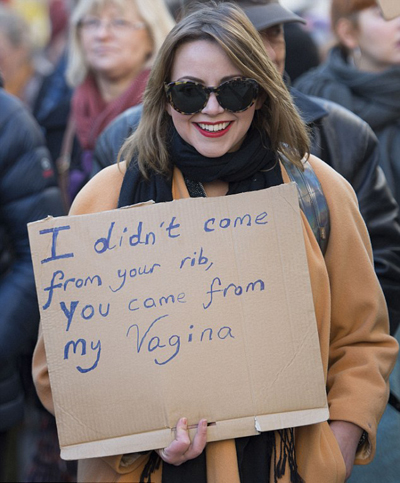 I didn't come
from your rib,
You came from
my Vagina